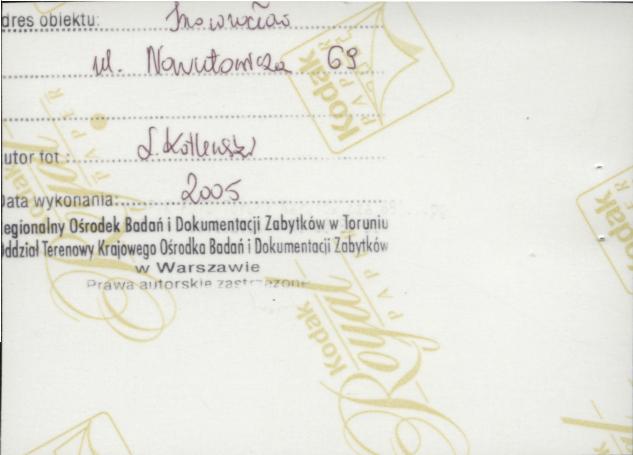 dres obiektu: Inowrocław
ul. Narutowicza 69
utor fot.: L. Kotlewski
Data wykonania: 2005
egionalny Ośrodek Badań i Dokumentacji Zabytków w Toruniu
Oddział Terenowy Krajowego Ośrodka Badań i Dokumentacji Zabytków
w Warszawie
Prawa autorskie zastrzeżone
Kodak
Royal
PAPER
Kodak
PAPER
Kodak
Royal
PAPER
Kodak